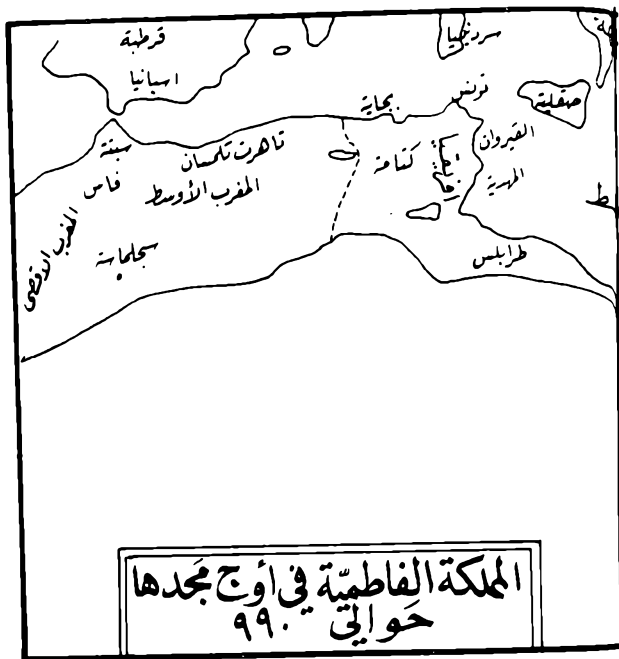 قرطبة
اسبانيا
سردينيا
صقلية
تونس
بجاية
القيروان
المهدية
كتامة
سبتة
فاس
تاهرت تلمسان
المغرب الأوسط
المغرب الاقصى
سجلماسة
طرابلس
المملكة الفاطميّة في أوج مَجدها
حَوالي ٩٩٠